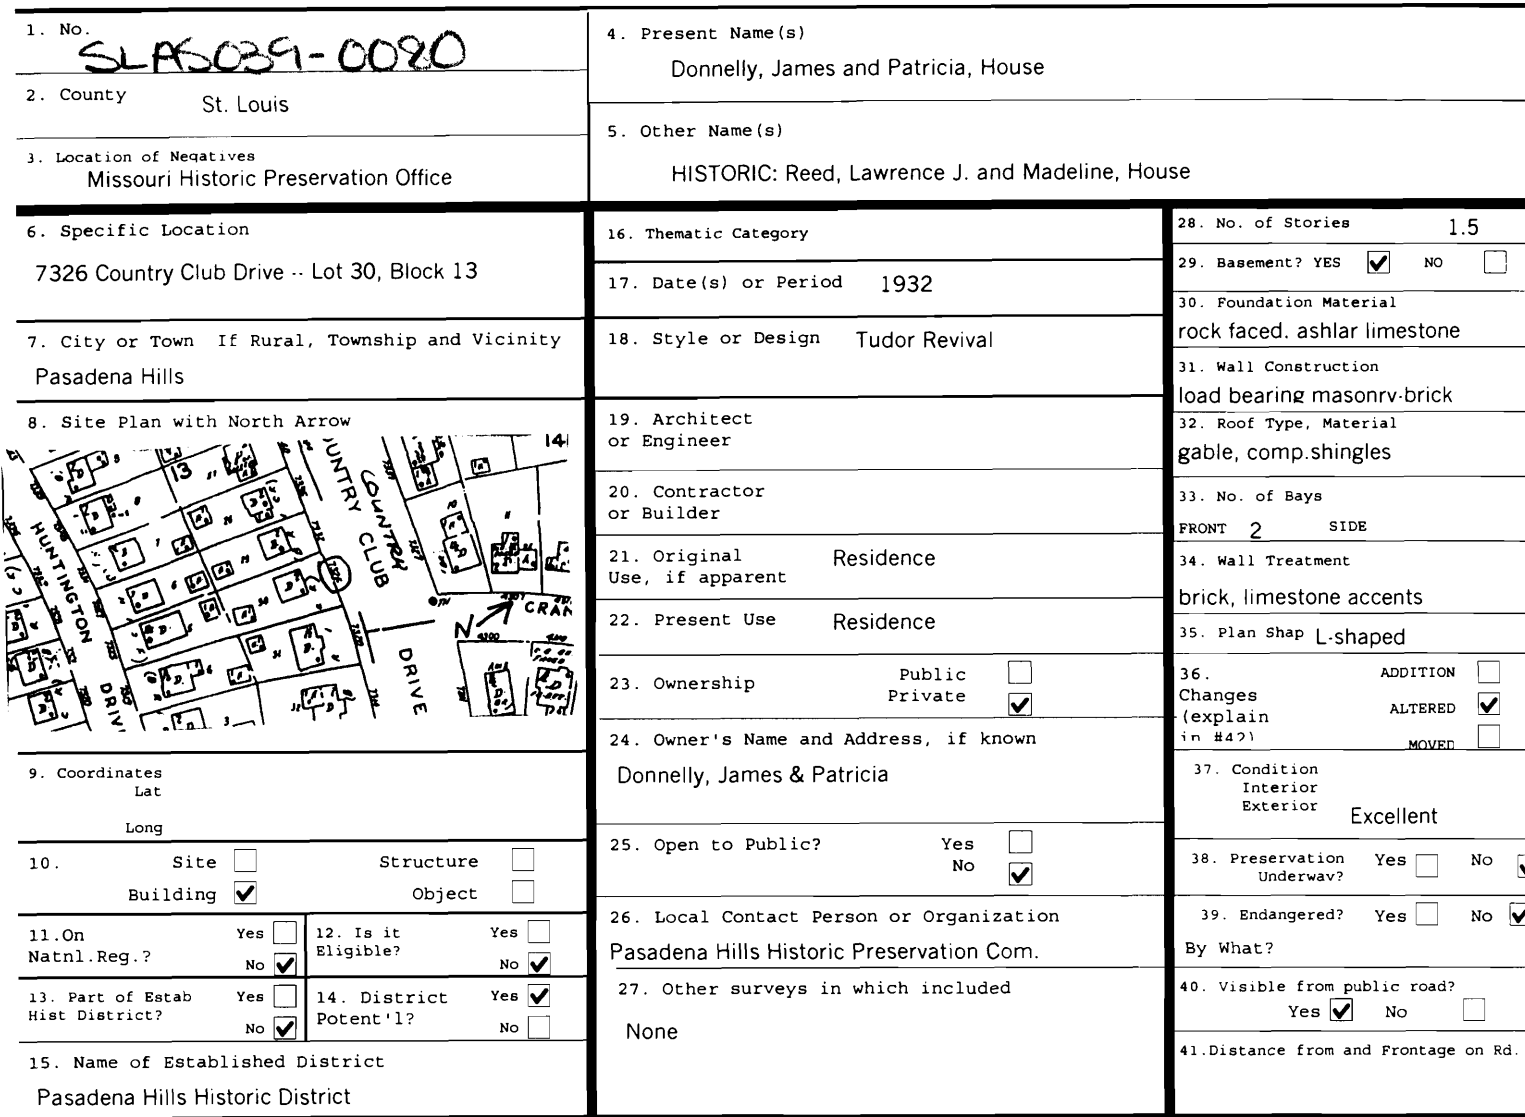 1. No.
SLAS039-0080
2. County
St. Louis
3. Location of Negatives
Missouri Historic Preservation Office
4. Present Name(s)
Donnelly, James and Patricia, House
5. Other Name(s)
HISTORIC: Reed, Lawrence J. and Madeline, House
6. Specific Location
7326 Country Club Drive -- Lot 30, Block 13
7. City or Town If Rural, Township and Vicinity
Pasadena Hills
8. Site Plan with North Arrow
13
HUNTINGTON
DRIV
COUNTRY
CLUB
DRIVE
7326
N
CRAN
9. Coordinates
Lat
Long
10. Site Structure
Building Object
11.On Yes
Natnl.Reg.? No
12. Is it Yes
Eligible? No
13. Part of Estab Yes
Hist District? No
14. District Yes
Potent'l? No
15. Name of Established District
Pasadena Hills Historic District
16. Thematic Category
17. Date(s) or Period 1932
18. Style or Design Tudor Revival
19. Architect
or Engineer
20. Contractor
or Builder
21. Original Residence
Use, if apparent
22. Present Use Residence
23. Ownership Public
Private
24. Owner's Name and Address, if known
Donnelly, James & Patricia
25. Open to Public? Yes
No
26. Local Contact Person or Organization
Pasadena Hills Historic Preservation Com.
27. Other surveys in which included
None
28. No. of Stories 1.5
29. Basement? YES NO
30. Foundation Material
rock faced. ashlar limestone
31. Wall Construction
load bearing masonry-brick
32. Roof Type, Material
gable, comp.shingles
33. No. of Bays
FRONT 2 SIDE
34. Wall Treatment
brick, limestone accents
35. Plan Shap L-shaped
36. ADDITION
Changes
(explain ALTERED
in #42) MOVED
37. Condition
Interior
Exterior Excellent
38. Preservation Yes No
Underway?
39. Endangered? Yes No
By What?
40. Visible from public road?
Yes No
41.Distance from and Frontage on Rd.